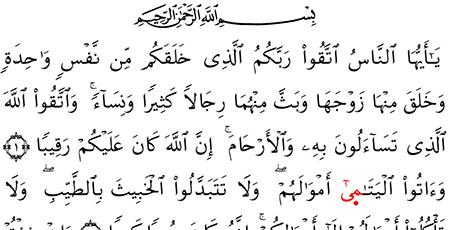 بِسْمِ ٱللَّهِ ٱلرَّحْمَٰنِ ٱلرَّحِيمِ
يَٰٓأَيُّهَا ٱلنَّاسُ ٱتَّقُواْ رَبَّكُمُ ٱلَّذِي خَلَقَكُم مِّن نَّفْسٖ وَٰحِدَةٖ
وَخَلَقَ مِنْهَا زَوْجَهَا وَبَثَّ مِنْهُمَا رِجَالٗا كَثِيرٗا وَنِسَآءٗۚ وَٱتَّقُواْ ٱللَّهَ
ٱلَّذِي تَسَآءَلُونَ بِهِۦ وَٱلْأَرْحَامَۚ إِنَّ ٱللَّهَ كَانَ عَلَيْكُمْ رَقِيبٗا ١
وَءَاتُواْ ٱلْيَتَٰمَىٰٓ أَمْوَٰلَهُمْۖ وَلَا تَتَبَدَّلُواْ ٱلْخَبِيثَ بِٱلطَّيِّبِۖ وَلَا